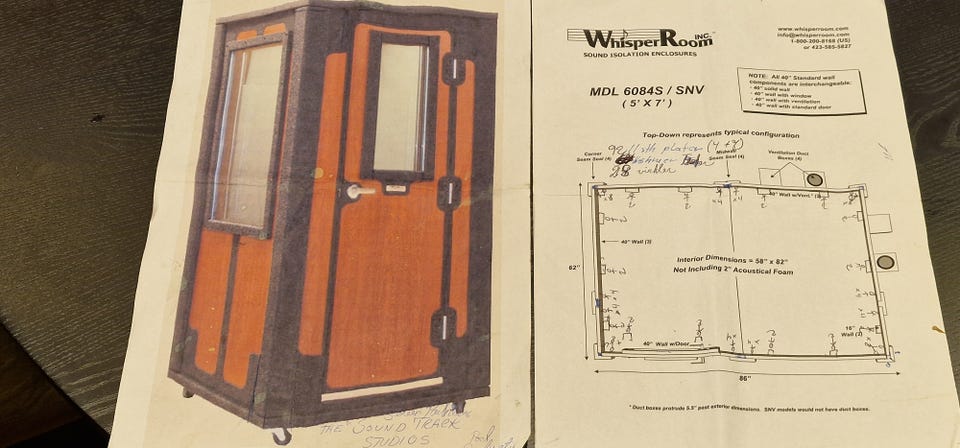 THE SOUND TRACK
STUDIOS
WHISPERROOM INC.
SOUND ISOLATION ENCLOSURES
www.whisperroom.com
info@whisperroom.com
1-800-200-8168 (US)
or 423-585-5827
MDL 6084S / SNV
( 5' X 7' )
NOTE: All 40" Standard wall
components are interchangeable:
- 40" solid wall
- 40" wall with window
- 40" wall with ventilation
- 40" wall with standard door
Top-Down represents typical configuration
Corner
Seam Seal (4)
Seam Seal (4)
Ventilation Duct
Boxes (4)
28
40" Wall w/Vent.
40" Wall (3)
62"
Interior Dimensions = 58" x 82"
Not Including 2" Acoustical Foam
16"
Wall (2)
40" Wall w/Door
86"
* Duct boxes protrude 5.5" past exterior dimensions. SNV models would not have duct boxes.